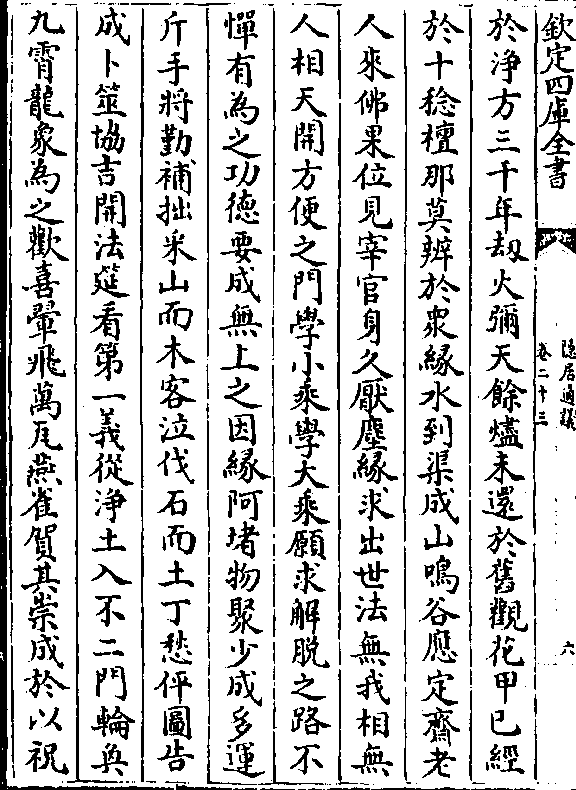 欽定四庫全書
隱居通議
卷二十二
六
於淨方三千年刼火彌天餘燼未還於舊觀花甲已經
於十稔檀那莫辨於衆緣水到渠成山鳴谷應定齋老
人來佛果位見宰官身久厭塵緣求出世法無我相無
人相天開方便之門學小乘學大乘願求解脱之路不
憚有為之功德要成無上之因緣阿堵物聚少成多運
斤手將勤補拙采山而木客泣伐石而土丁愁伻圖告
成卜筮協吉開法筵看第一義從淨土入不二門輪奐
九霄龍象為之歡喜翬飛萬瓦燕雀賀其崇成於以祝